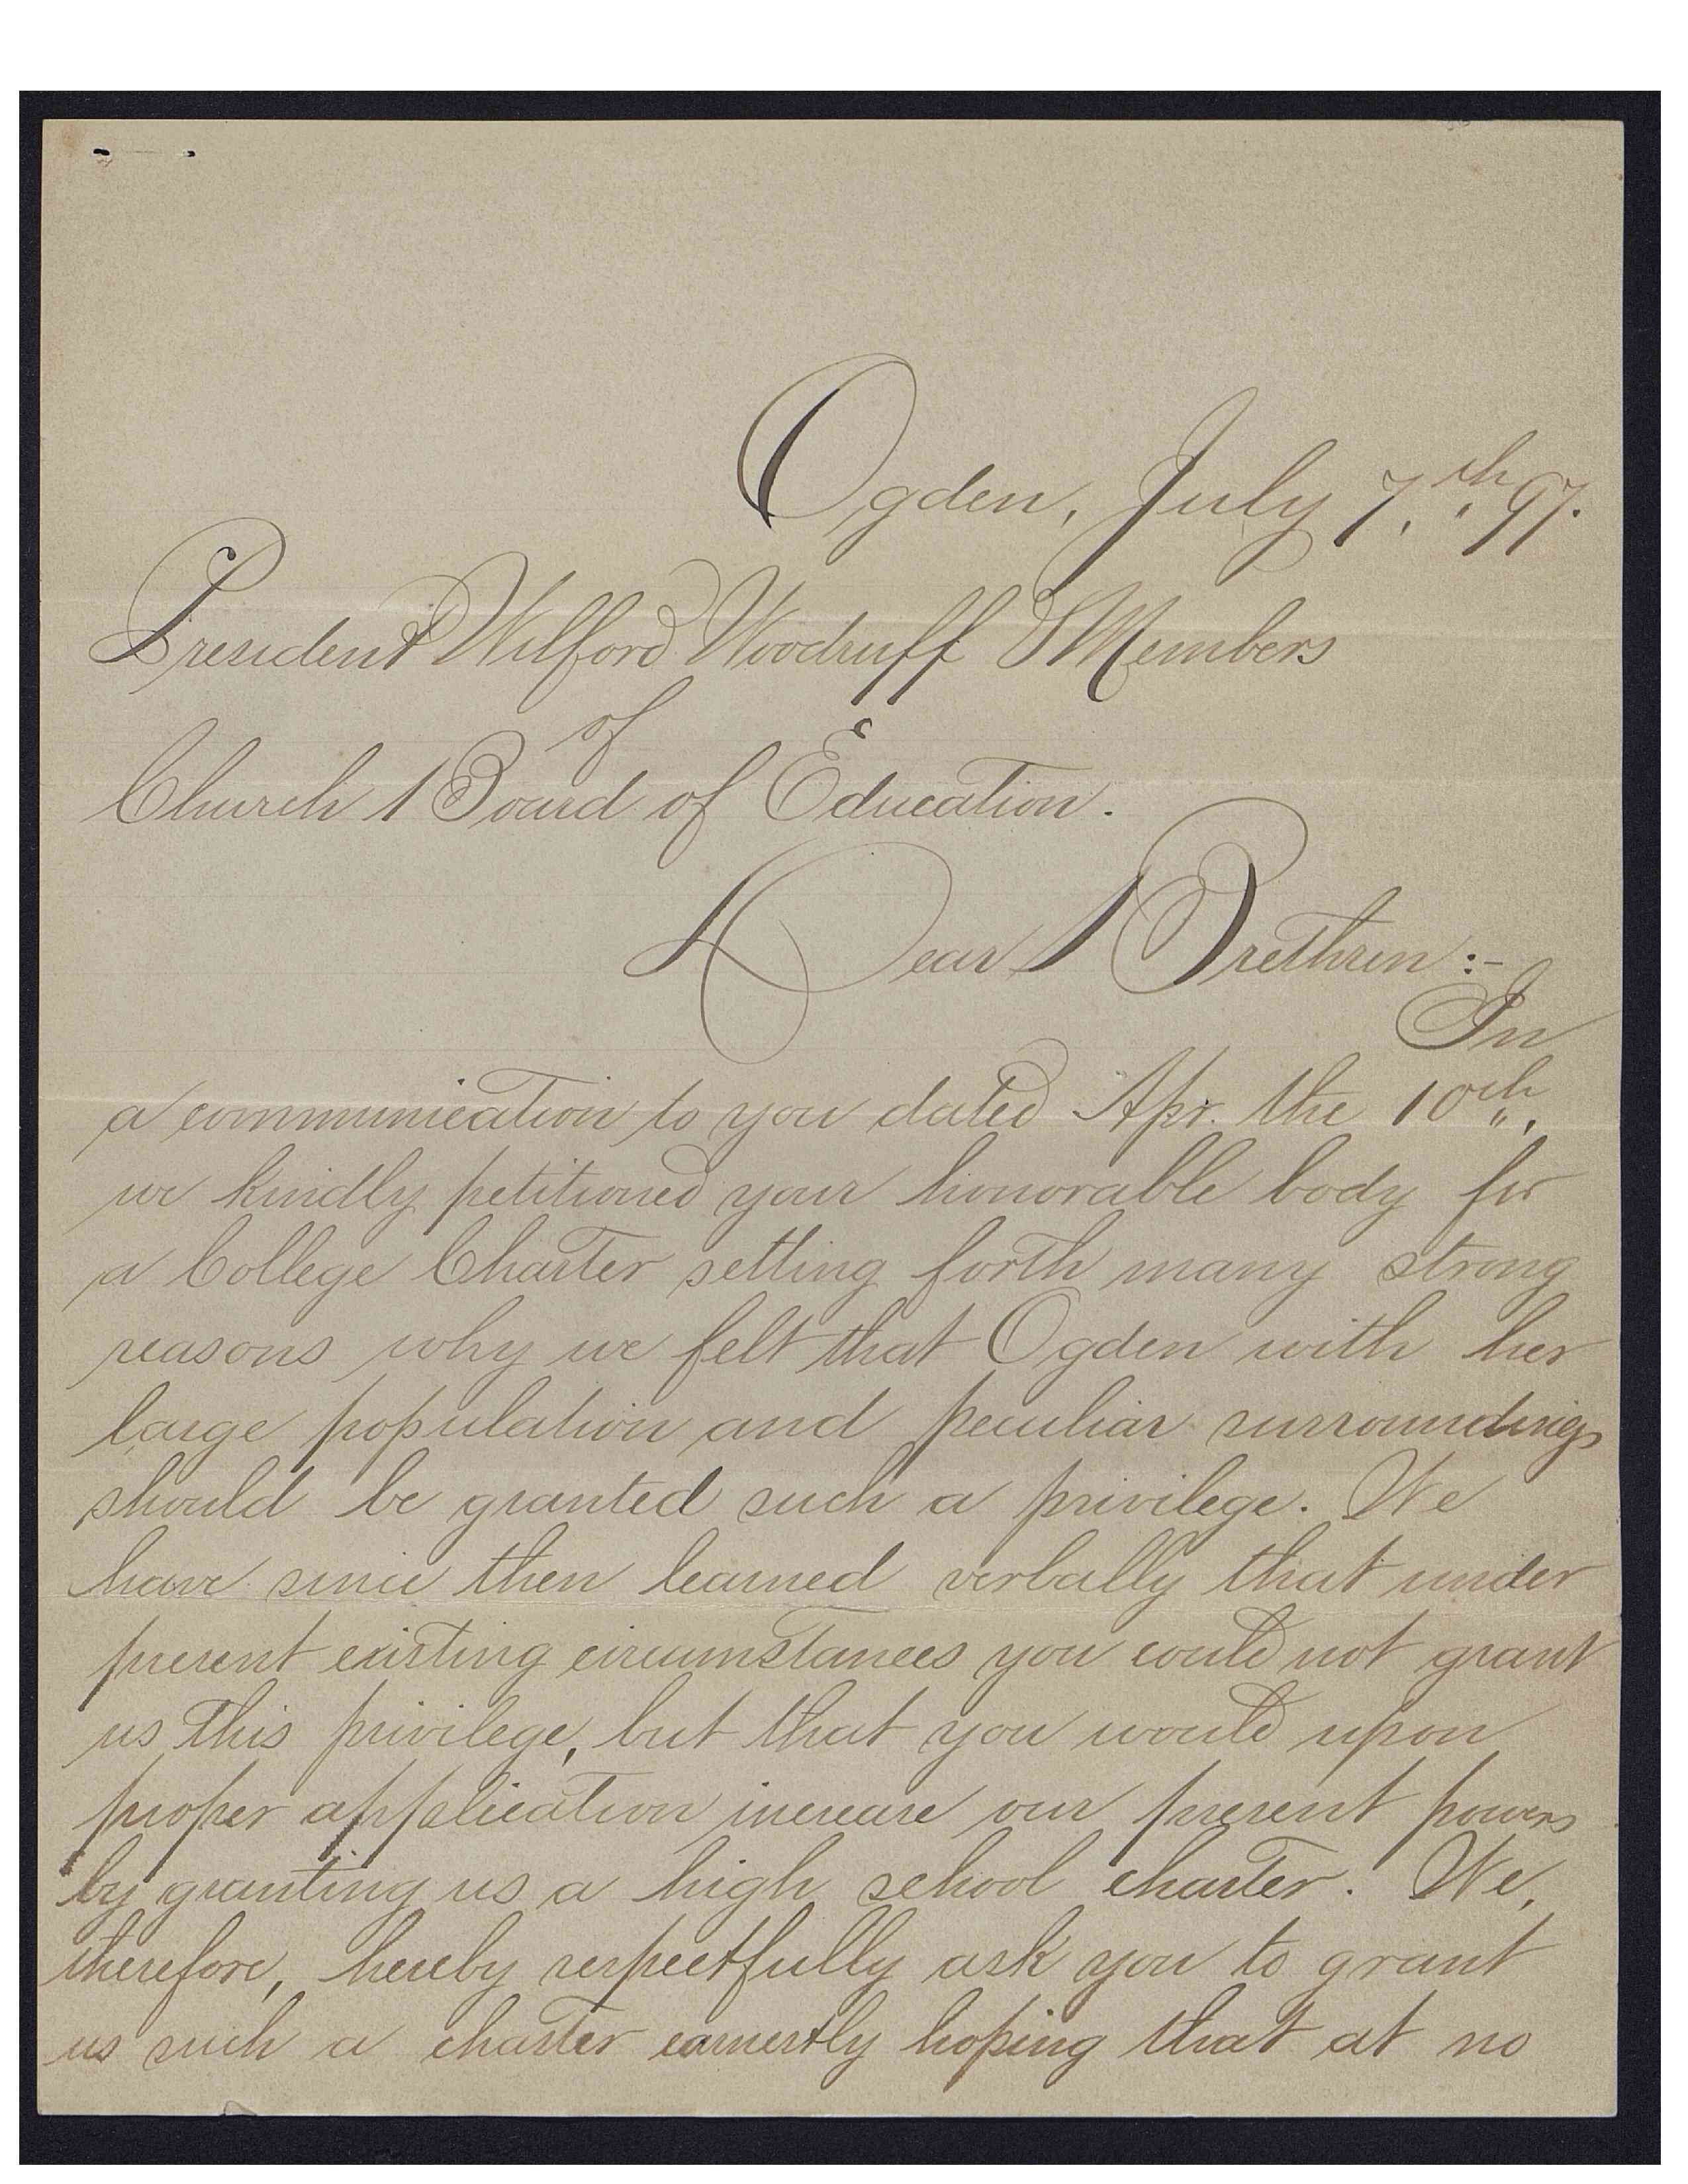 Ogden, July 7,th 97.
President Wilford Woodruff & Members
of
Church Board of Education.
Dear Brethren:-
In
a communication to you dated Apr. the 10th,
we kindly petitioned your honorable body for
a College Charter setting forth many strong
reasons why we felt that Ogden with her
large population and peculiar surroundings
should be granted such a privilege. We
have since then learned verbally that under
present existing circumstances you could not grant
us this privilege, but that you would upon
proper application increase our present powers
by granting us a high school charter. We,
therefore, hereby respectfully ask you to grant
us such a charter earnestly hoping that at no